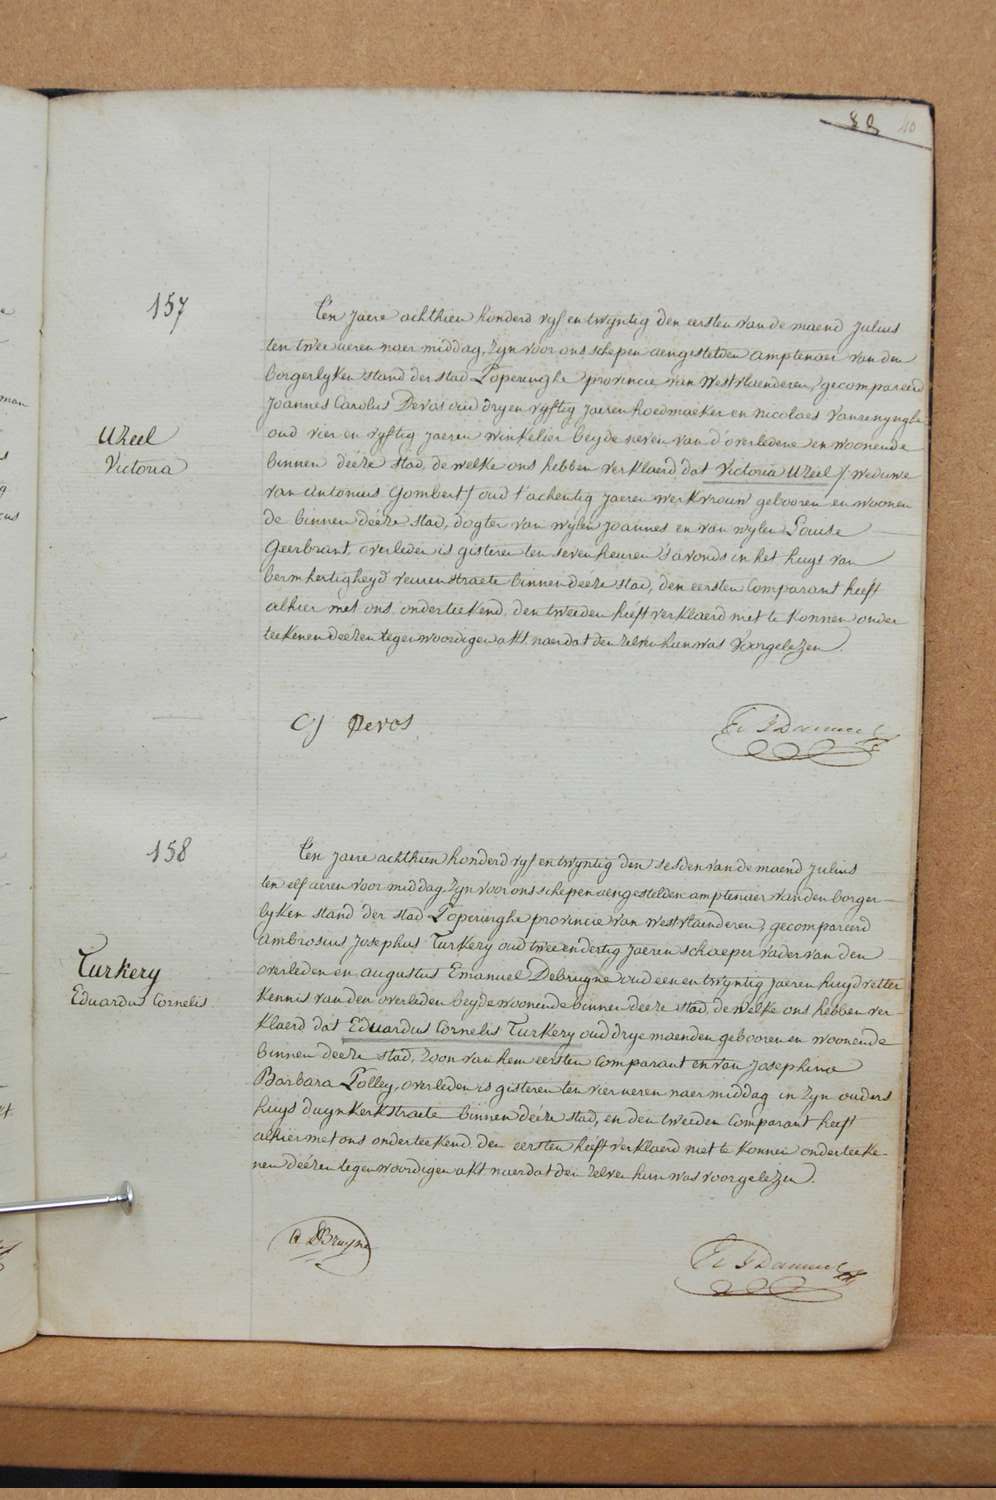 88 40
157
Uzeel
Victoria
Ten jaere achthien honderd vyf en twyntig den eersten van de maend Julius
ten twee ueren naer middag, zyn voor ons schepen aengestelden amptenaer van den
borgerlyken stand der stad Poperinghe provincie van Westvlaenderen, gecompareerd
Joannes Carolus Devos oud dry en vyftig jaeren hoedmaeker en nicolaes Vanrenynghe
oud vier en vyftig jaeren winkelier beyde neven van d'overledene en woonende
binnen déeze stad, de welke ons hebben verklaerd dat Victoria Uzeel / weduwe
van Antonius Gombert / oud t'achentig jaeren werkvrouw gebooren en woonen
de binnen déeze stad, dogter van wylen Joannes en van wylen Louise
Geerbrant, overleden is gisteren ten seven heuren s'avonds in het huys van
bermhertigheyd veurenstraete binnen deeze stad, den eersten Comparant heeft
alhier met ons onderteekend, den tweeden heeft verklaerd niet te konnen onder
teekenen deezen tegenwoordigen akt naerdat den zelven hun was voorgelezen.
CJ Devos
158
Turkery
Eduardus Cornelis
Ten jaere achthien honderd vyf en twyntig den sesden van de maend Julius
ten elf ueren voor middag zyn voor ons schepen aengestelden amptenaer van den borger-
lyken stand der stad Poperinghe provincie van Westvlaenderen, gecompareerd
Ambrosius Josephus Turkery oud twee en dertig jaeren schaeper vader van den
overleden en augustus Emanuel Debruyne oud een en twyntig jaeren huydvetter
kennis van den overleden beyde woonende binnen deeze stad, de welke ons hebben ver-
klaerd dat Eduardus Cornelis Turkery oud drye maenden gebooren en woonende
binnen deeze stad, zoon van hem eersten comparant en van Josephina
Barbara Polley, overleden is gisteren ten vier ueren naer middag in zyn ouders
huys duynkerkstraete binnen déeze stad, en den tweeden Comparant heeft
alhier met ons onderteekend den eersten heeft verklaerd niet te konnen onderteeke-
nen déezen tegenwoordigen akt naerdat den zelven hun was voorgelezen.
A DBruyne